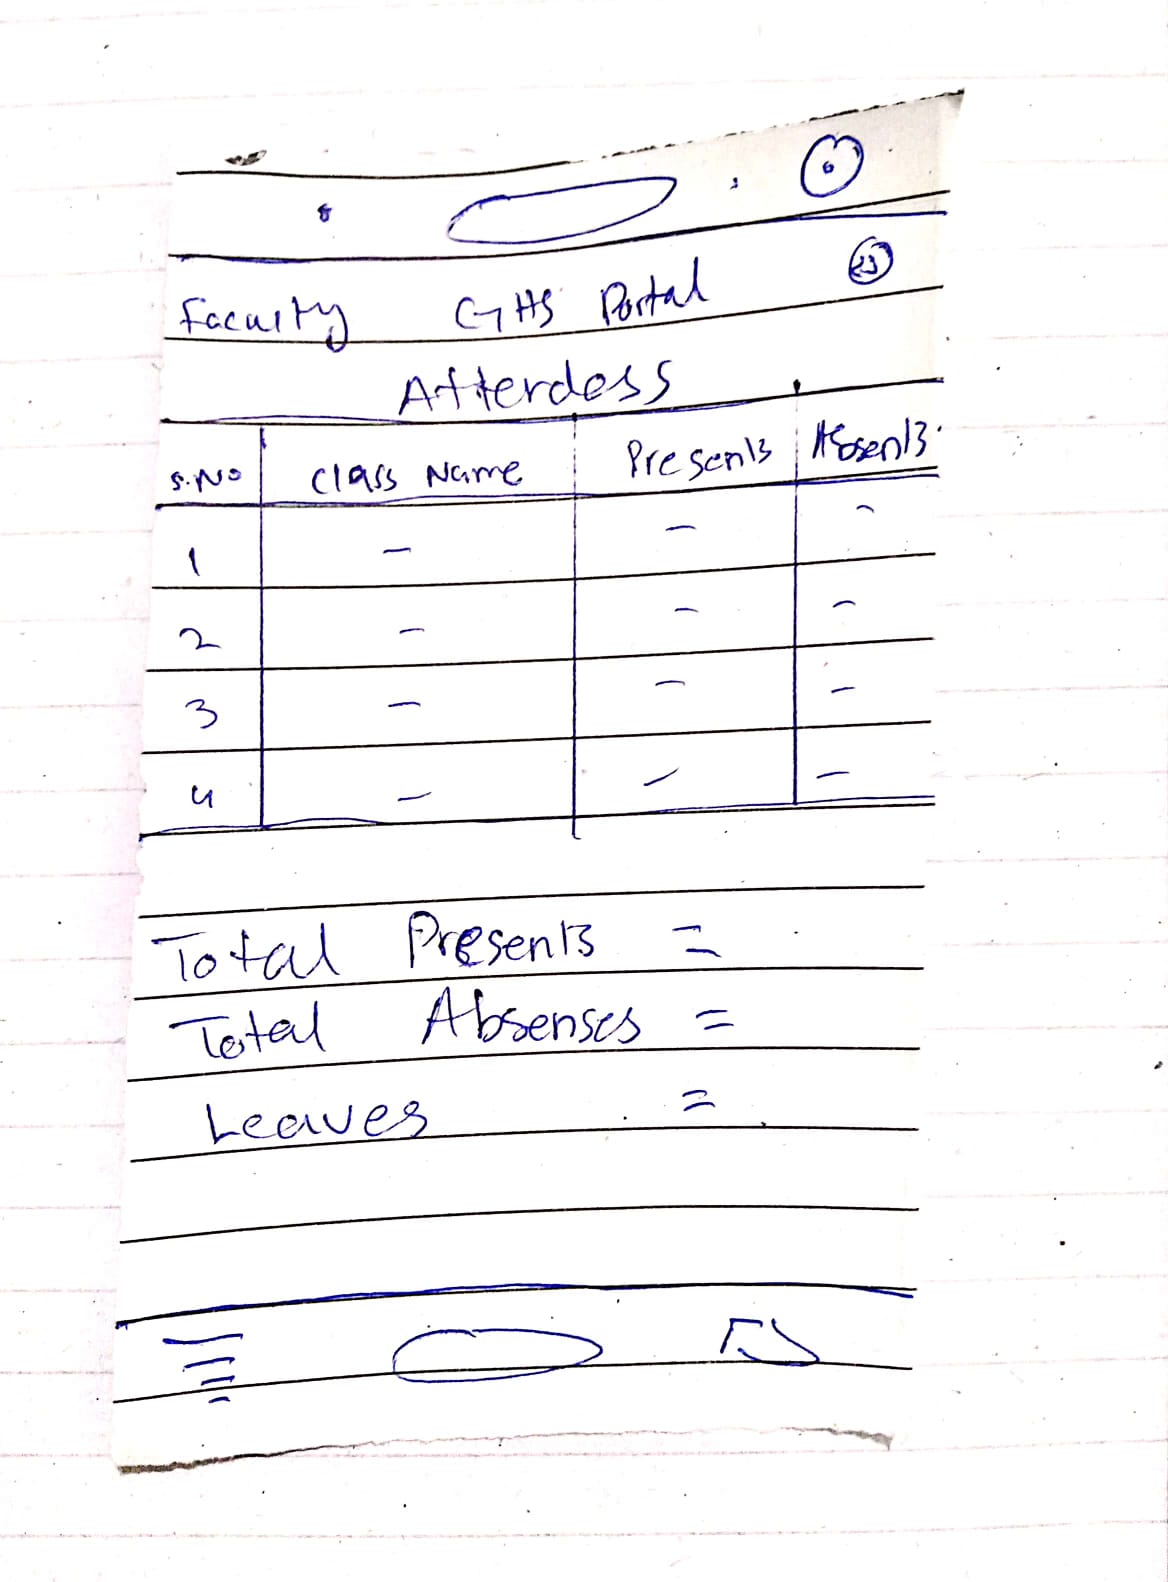 Faculty GHS Portal
Atterdess
S.No Class Name Presents Absents
1 - - -
2 - - -
3 - - -
4 - - -
Total Presents =
Total Absenses =
Leaves =